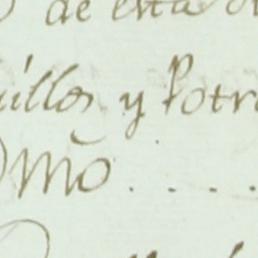 de esta
illos y Potr
Mõ . . . .